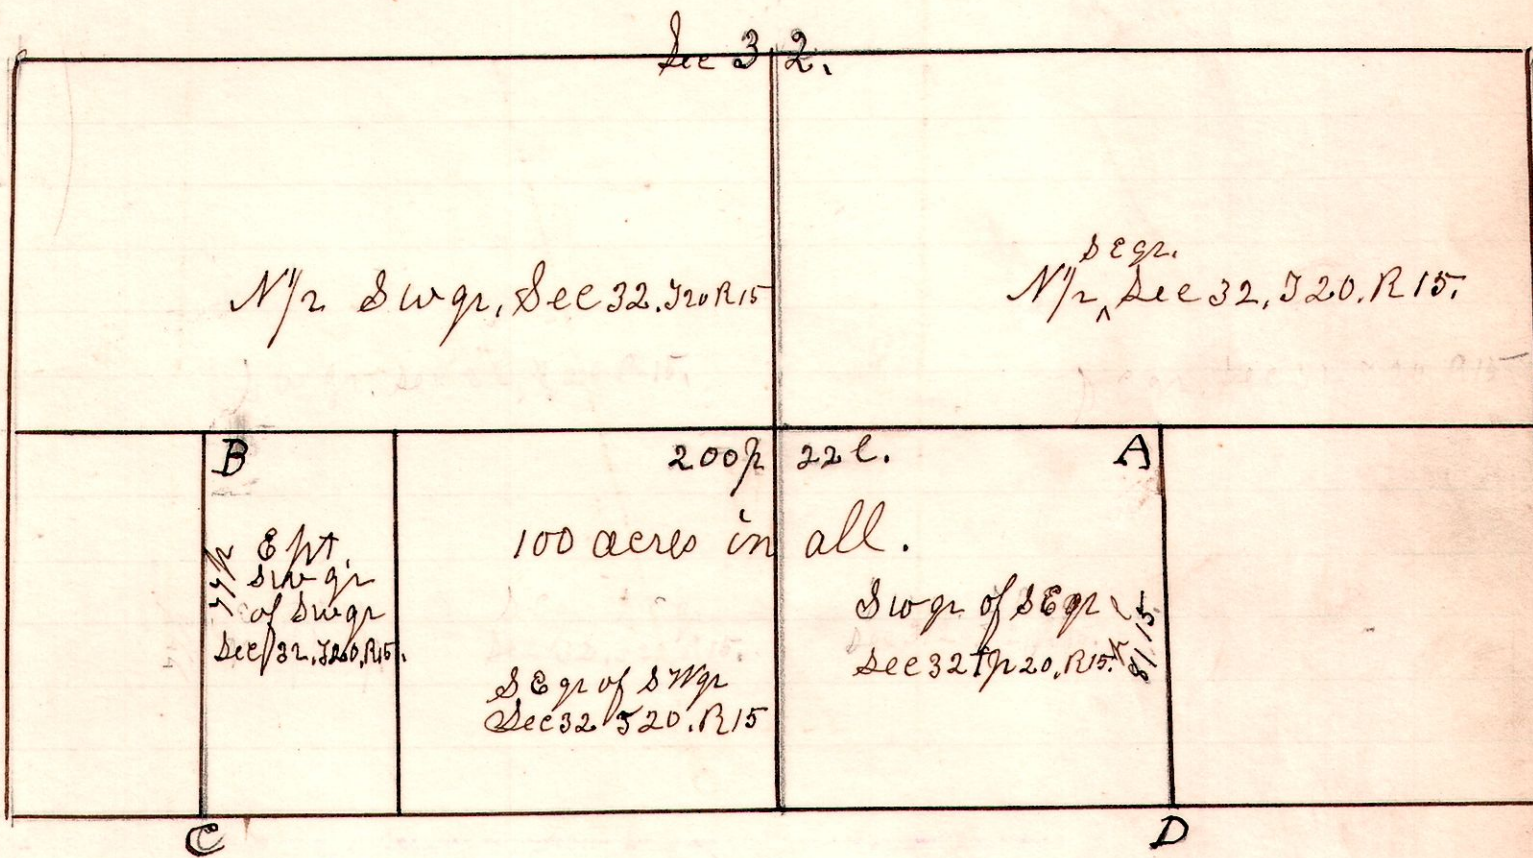 Sec 32.
N 1/2 Swqr, Sec 32. T20 R15
seqr.
N 1/2 ^ Sec 32, T20. R15.
B
200p 22l.
A
100 acres in all.
E pt.
Sw qr
of Swqr
Sec 32, T20, R15.
Swqr of SEqr
Sec 32 Tp 20, R15.
81p 15l
SEqr of SWqr
Sec 32 T20. R15
C
D